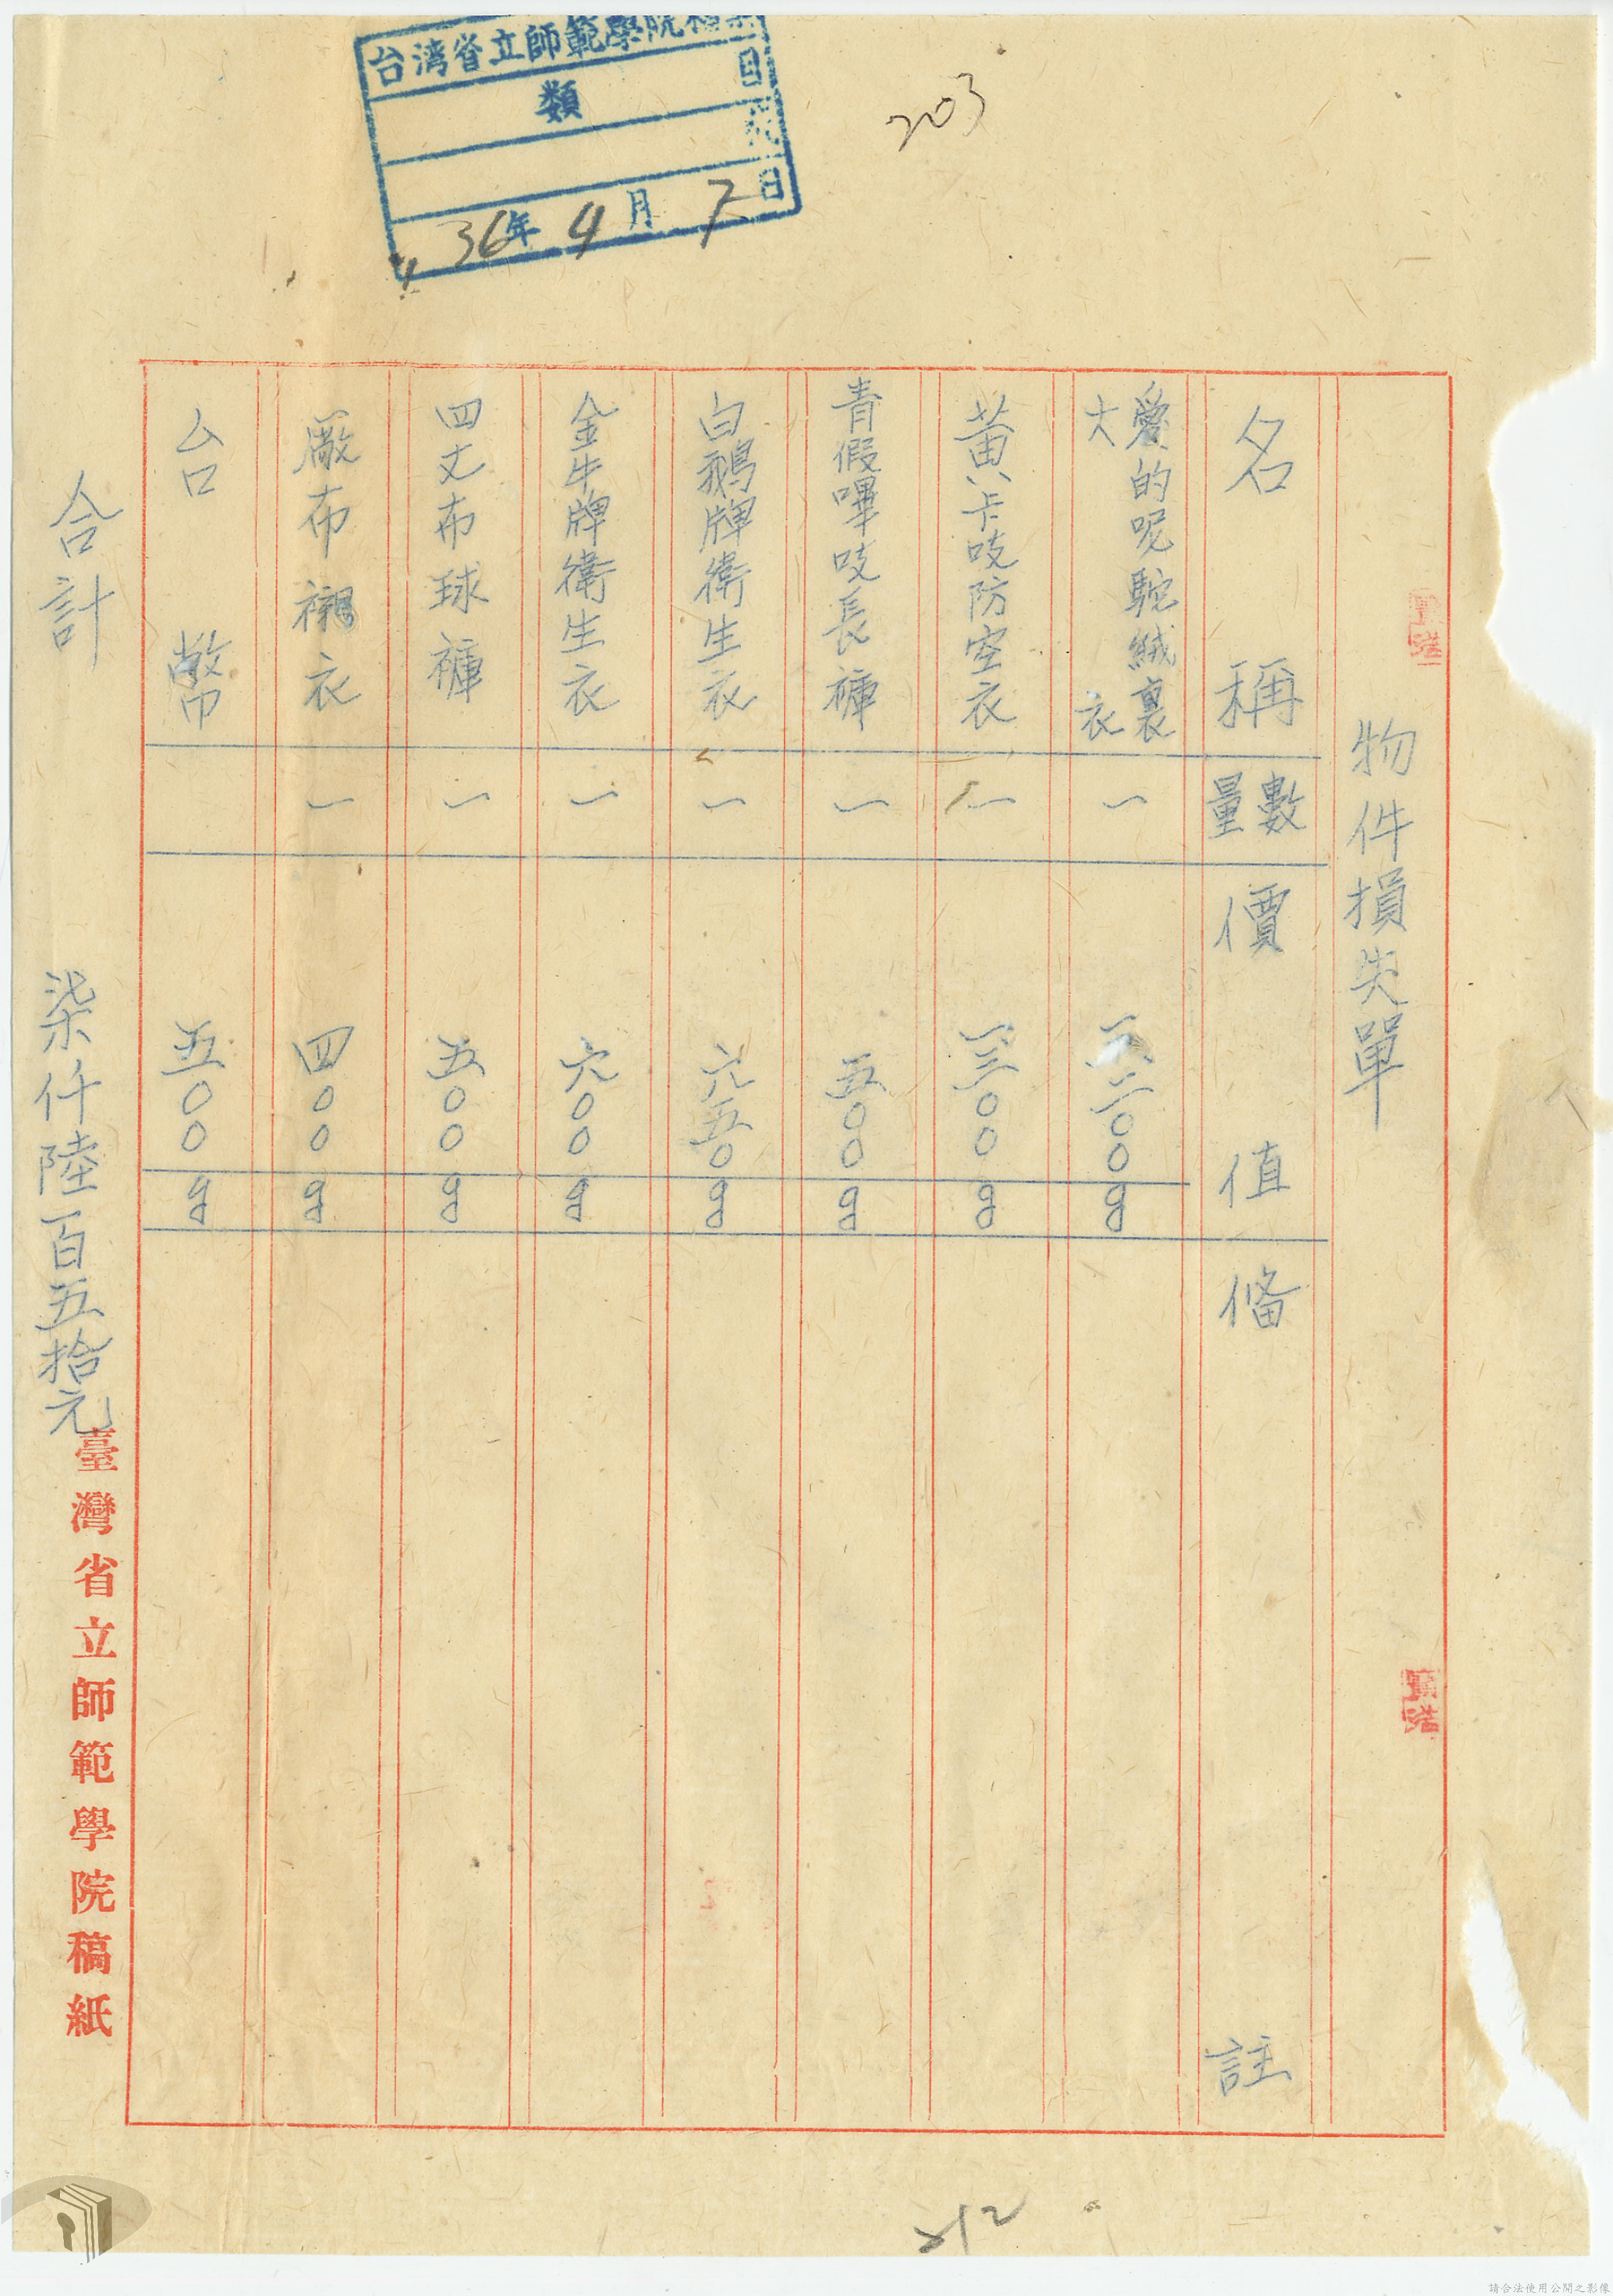 台湾省立師範學院檔案
類 目
號
36年4月7日
203
物件損失單
名稱 數量 價值 俻註
愛的呢駝絨裏大衣 一 三二〇〇
黃卡吱防空衣 一 一三〇〇
青假嗶吱長褲 一 五〇〇
白鵝牌衛生衣 一 六五〇
金牛牌衛生衣 一 六〇〇
四丈布球褲 一 五〇〇
厰布襯衣 一 四〇〇
台幣 五〇〇
合計 柒仟陸百五拾元
臺灣省立師範學院稿紙
212
請合法使用公開之影像